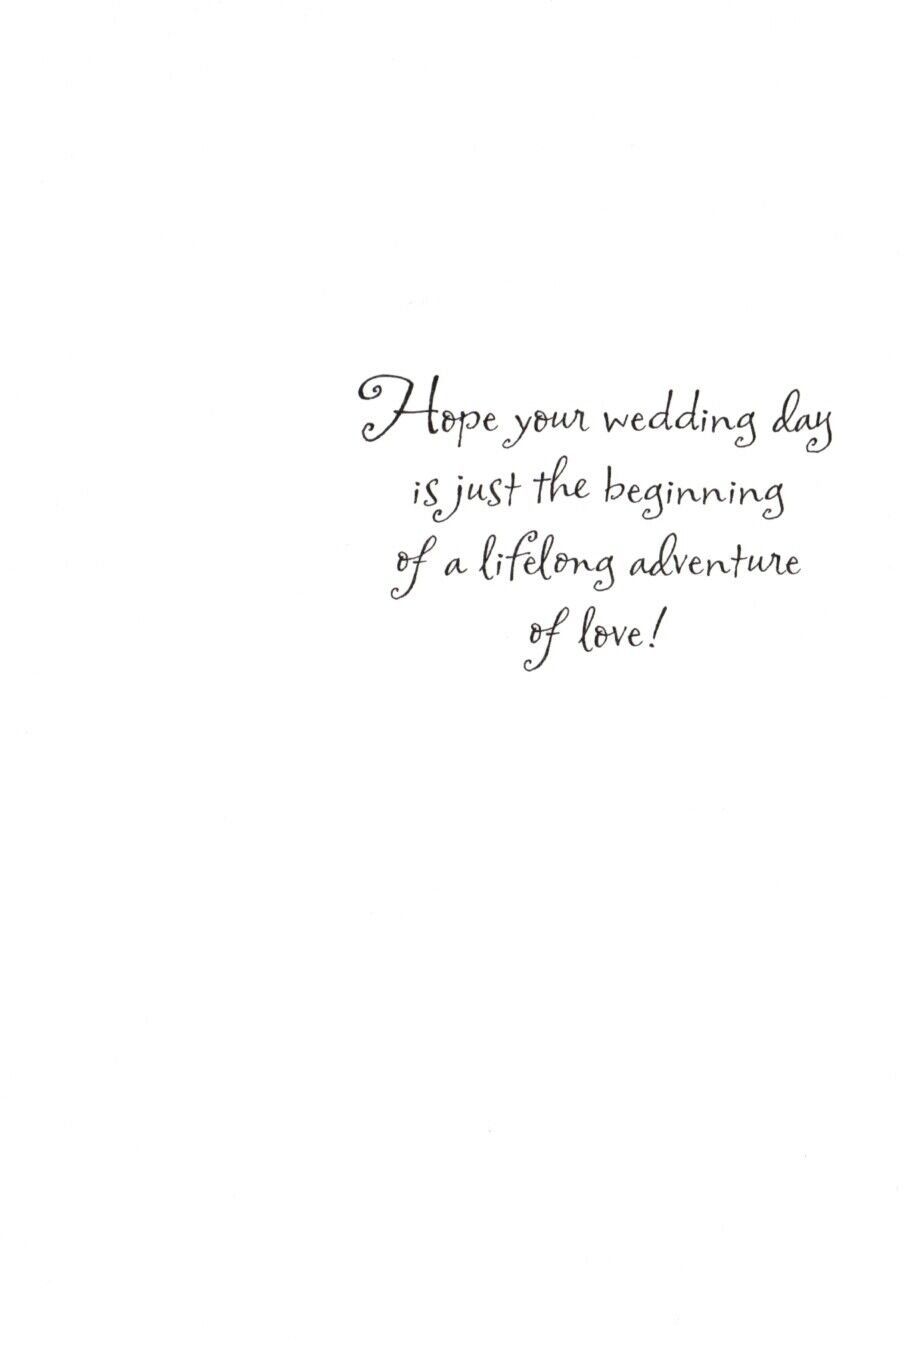 Hope your wedding day
is just the beginning
of a lifelong adventure
of love!